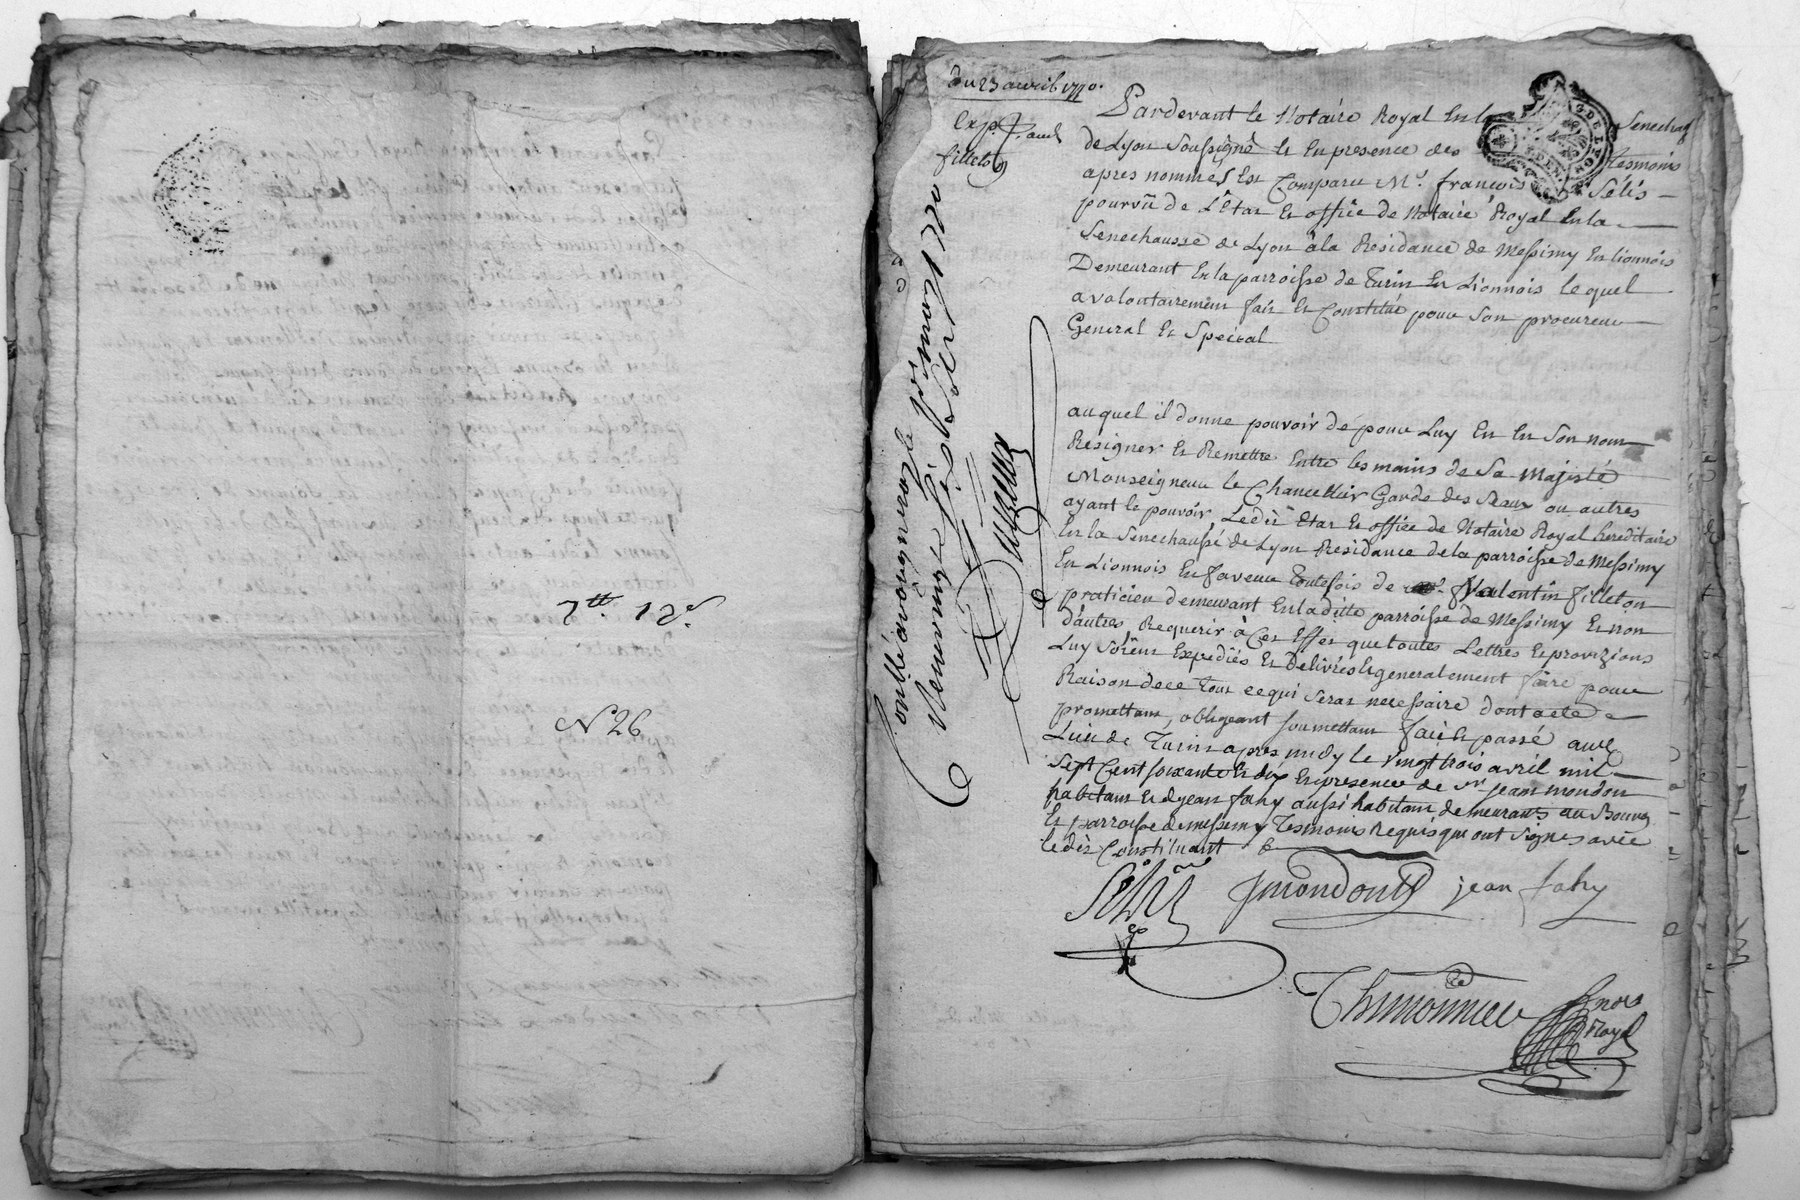 7tt 12s
N 26
du 23 avril 1770.
Exp.
filleton
Pardevant le Notaire Royal En la Senechaé
de Lyon Soussigné Et En presence des Tesmoins
apres nommés Est Comparu Mr. françois Sélis
pourvû de L'Etat Et office de Notaire Royal En la
Senechaussé de Lyon à la Residance de Messimy En Lionnois
Demeurant En la parroisse de Turin En Lionnois lequel
a volontairement fait Et Constitué pour Son procureur
General Et Special
auquel il donne pouvoir de pour Luy Et En Son nom
Résigner Et Remettre Entre les mains de Sa Majesté
Monseigneur le Chancellier Garde des Seaux ou autres
ayant le pouvoir, Ledit Etat Et office de Notaire Royal hereditaire
En la Senechaussé de Lyon Residance de la parroisse de Messimy
En Lionnois En faveur toutefois de Valentin filleton
praticien demeurant En laditte parroisse de Messimy Et non
d'autres Requerir à Cet Effet que toutes Lettres Et provizions
Luy Soient Expediés Et Delivrés Et generalement faire pour
Raison de ce Tout ce qui Seras necessaire dont acte
promettant, obligeant soumettant fait Et passé au
Lieu de Turin apres midy le vingt trois avril mil
Sept Cent soixante Et dix En presence de jean mondon
habitant Et de jean fahy aussi habitant demeurants au Bourg
Et parroisse de messimy Tesmoins Requis qui ont Signés avec
ledit Constituant
Sélis
Jmondon jean fahy
Thimonnier
Royal
Conllé à voigneray le premier may 1770
Reçu neuf sols